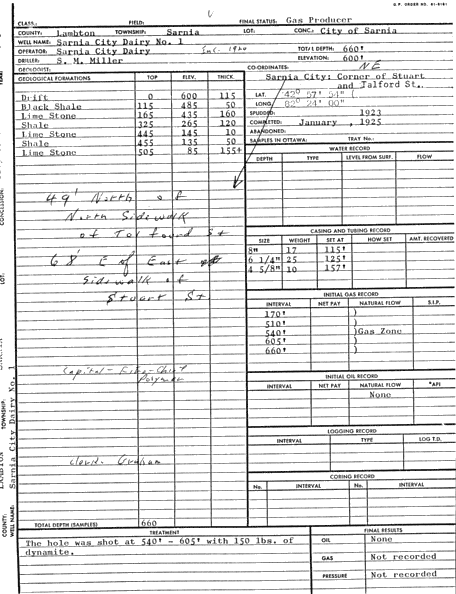 G.P. ORDER NO. 61-5161
CLASS.: FIELD: FINAL STATUS: Gas Producer
COUNTY: Lambton TOWNSHIP: Sarnia LOT: CONC.: City of Sarnia
WELL NAME: Sarnia City Dairy No. 1
OPERATOR: Sarnia City Dairy Inc. 1920 TOTAL DEPTH: 660'
DRILLER: S. M. Miller ELEVATION: 600'
GEOLOGIST: CO-ORDINATES: NE
GEOLOGICAL FORMATIONS TOP ELEV. THICK.
Sarnia City: Corner of Stuart
and Talford St.
Drift 0 600 115
Black Shale 115 485 50
Lime Stone 165 435 160
Shale 325 265 120
Lime Stone 445 145 10
Shale 455 135 50
Lime Stone 505 85 155+
LAT. 42° 57' 54" (
LONG. 82° 24' 00"
SPUDDED: 1923
COMPLETED: January , 1925
ABANDONED:
SAMPLES IN OTTAWA: TRAY No.:
WATER RECORD
DEPTH TYPE LEVEL FROM SURF. FLOW
49' North of
North Sidewalk
of Talfourd St
68' E of East
Sidewalk of
Stuart St
CASING AND TUBING RECORD
SIZE WEIGHT SET AT HOW SET AMT. RECOVERED
8" 17 115'
6 1/4" 25 125'
4 5/8" 10 157'
INITIAL GAS RECORD
INTERVAL NET PAY NATURAL FLOW S.I.P.
170' )
510' )
540' )Gas Zone
605' )
660' )
Capital -
Polymer
INITIAL OIL RECORD
INTERVAL NET PAY NATURAL FLOW °API
None
LOGGING RECORD
INTERVAL TYPE LOG T.D.
Graham
CORING RECORD
No. INTERVAL No. INTERVAL
TOTAL DEPTH (SAMPLES) 660
TREATMENT
The hole was shot at 540' - 605' with 150 lbs. of
dynamite.
FINAL RESULTS
OIL None
GAS Not recorded
PRESSURE Not recorded
CONCESSION:
LOT:
TOWNSHIP:
COUNTY: LAMBTON
WELL NAME: Sarnia City Dairy No. 1